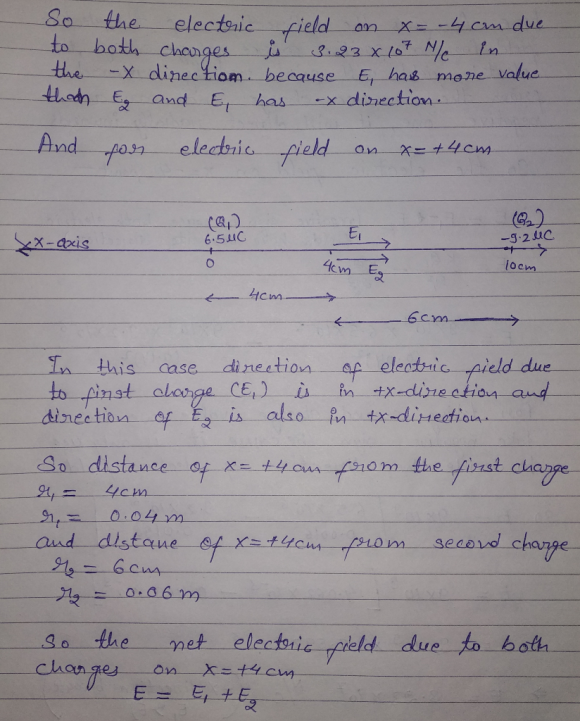 So the electric field on x = -4 cm due
to both charges is 3.23 x 10⁷ N/c in
the -x direction. because E₁ has more value
than E₂ and E₁ has -x direction.
And for electric field on x = +4cm
(Q₁) (Q₂)
x-axis 6.5μC E₁ -9.2μC
0 4cm E₂ 10cm
4cm
6cm
In this case direction of electric field due
to first charge (E₁) is in +x-direction and
direction of E₂ is also in +x-direction.
So distance of x = +4cm from the first charge
r₁ = 4cm
r₁ = 0.04 m
and distane of x=+4cm from second charge
r₂ = 6cm
r₂ = 0.06 m
So the net electric field due to both
charges on x=+4cm
E = E₁ + E₂